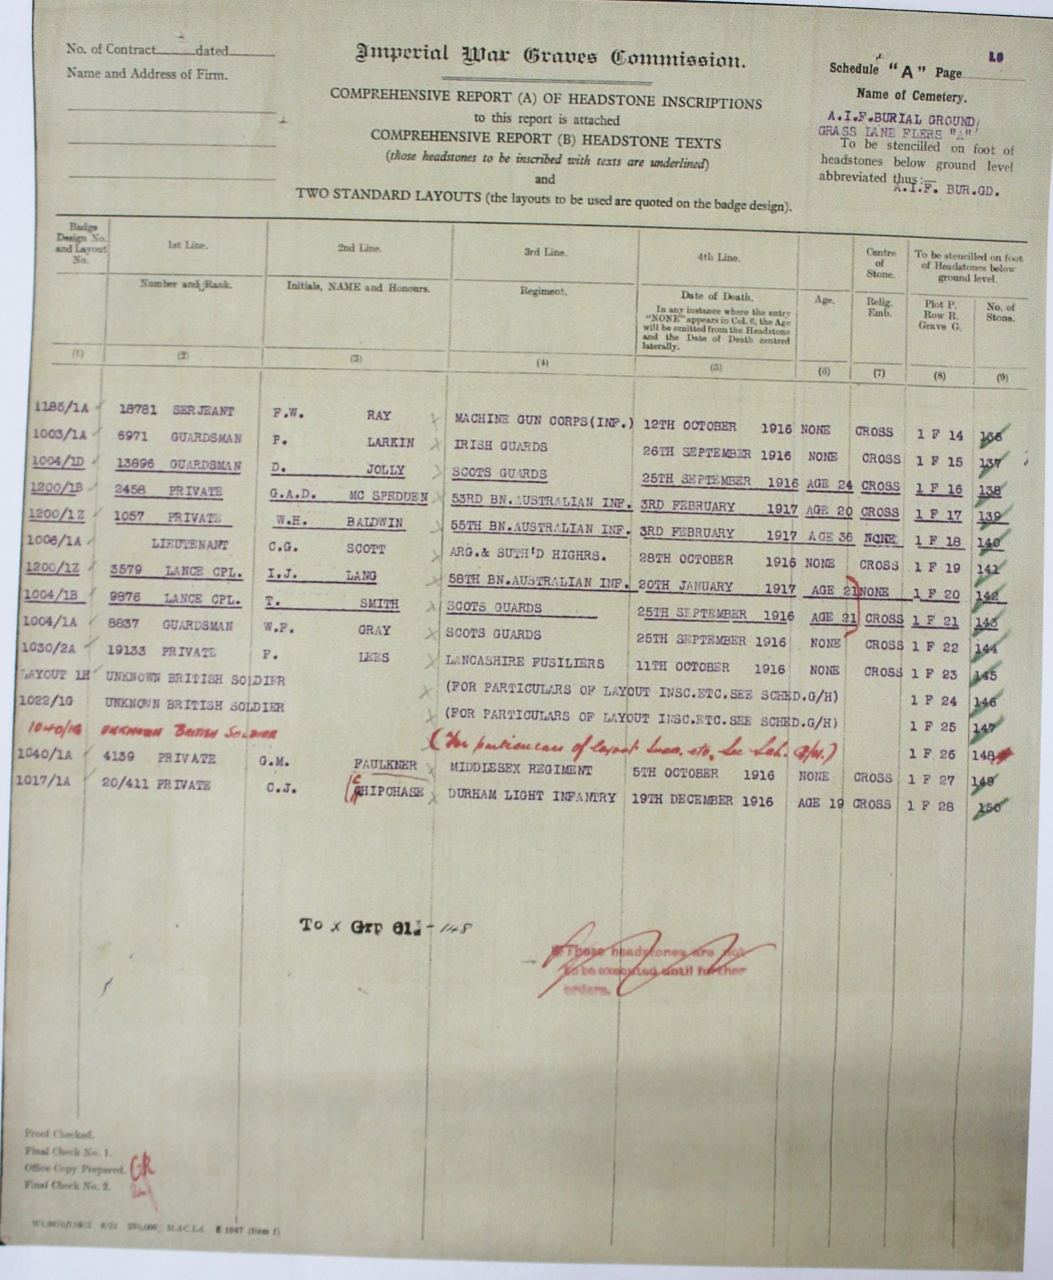 No. of Contract dated
Name and Address of Firm.
Imperial War Graves Commission.
COMPREHENSIVE REPORT (A) OF HEADSTONE INSCRIPTIONS
to this report is attached
COMPREHENSIVE REPORT (B) HEADSTONE TEXTS
(those headstones to be inscribed with texts are underlined)
and
TWO STANDARD LAYOUTS (the layouts to be used are quoted on the badge design).
Schedule "A" Page
Name of Cemetery.
A.I.F.BURIAL GROUND,
GRASS LANE FLERS "A"
To be stencilled on foot of
headstones below ground level
abbreviated thus:—
A.I.F. BUR.GD.
Badge Design No. and Layout No.
1st Line.
2nd Line.
3rd Line.
4th Line.
Centre of Stone.
To be stencilled on foot of Headstones below ground level.
Number and Rank.
Initials, NAME and Honours.
Regiment.
Date of Death.
In any instance where the entry "NONE" appears in Col. 6, the Age will be omitted from the Headstone and the Date of Death centred laterally.
Age.
Relig. Emb.
Plot P. Row R. Grave G.
No. of Stone.
(1) (2) (3) (4) (5) (6) (7) (8) (9)
1185/1A 18781 SERJEANT F.W. RAY MACHINE GUN CORPS(INF.) 12TH OCTOBER 1916 NONE CROSS 1 F 14
1003/1A 6971 GUARDSMAN P. LARKIN IRISH GUARDS 26TH SEPTEMBER 1916 NONE CROSS 1 F 15 137
1004/1D 13896 GUARDSMAN D. JOLLY SCOTS GUARDS 25TH SEPTEMBER 1916 AGE 24 CROSS 1 F 16 138
1200/1B 2458 PRIVATE G.A.D. MC SPEDDEN 53RD BN.AUSTRALIAN INF. 3RD FEBRUARY 1917 AGE 20 CROSS 1 F 17 139
1200/1Z 1057 PRIVATE W.H. BALDWIN 55TH BN.AUSTRALIAN INF. 3RD FEBRUARY 1917 AGE 36 NONE 1 F 18 140
1006/1A LIEUTENANT C.G. SCOTT ARG.& SUTH'D HIGHRS. 28TH OCTOBER 1916 NONE CROSS 1 F 19 141
1200/1Z 3579 LANCE CPL. I.J. LANG 58TH BN.AUSTRALIAN INF. 20TH JANUARY 1917 AGE 21 NONE 1 F 20 142
1004/1B 9876 LANCE CPL. T. SMITH SCOTS GUARDS 25TH SEPTEMBER 1916 AGE 21 CROSS 1 F 21 143
1004/1A 8837 GUARDSMAN W.P. GRAY SCOTS GUARDS 25TH SEPTEMBER 1916 NONE CROSS 1 F 22 144
1030/2A 19133 PRIVATE F. IKES LANCASHIRE FUSILIERS 11TH OCTOBER 1916 NONE CROSS 1 F 23 145
LAYOUT 1H UNKNOWN BRITISH SOLDIER (FOR PARTICULARS OF LAYOUT INSC.ETC.SEE SCHED.G/H) 1 F 24 146
1022/1G UNKNOWN BRITISH SOLDIER (FOR PARTICULARS OF LAYOUT INSC.ETC.SEE SCHED.G/H) 1 F 25 147
1040/1G UNKNOWN BRITISH SOLDIER (For particulars of layout Insc. etc. See Sch. G/H.) 1 F 26 148
1040/1A 4139 PRIVATE G.M. FAULKNER MIDDLESEX REGIMENT 5TH OCTOBER 1916 NONE CROSS 1 F 27 149
1017/1A 20/411 PRIVATE C.J. CHIPCHASE DURHAM LIGHT INFANTRY 19TH DECEMBER 1916 AGE 19 CROSS 1 F 28 150
To x Grp 61. - 148
These headstones are not
to be executed until further
orders.
Proof Checked.
Final Check No. 1.
Office Copy Prepared. GR
Final Check No. 2.
E 1047 (Form 1)